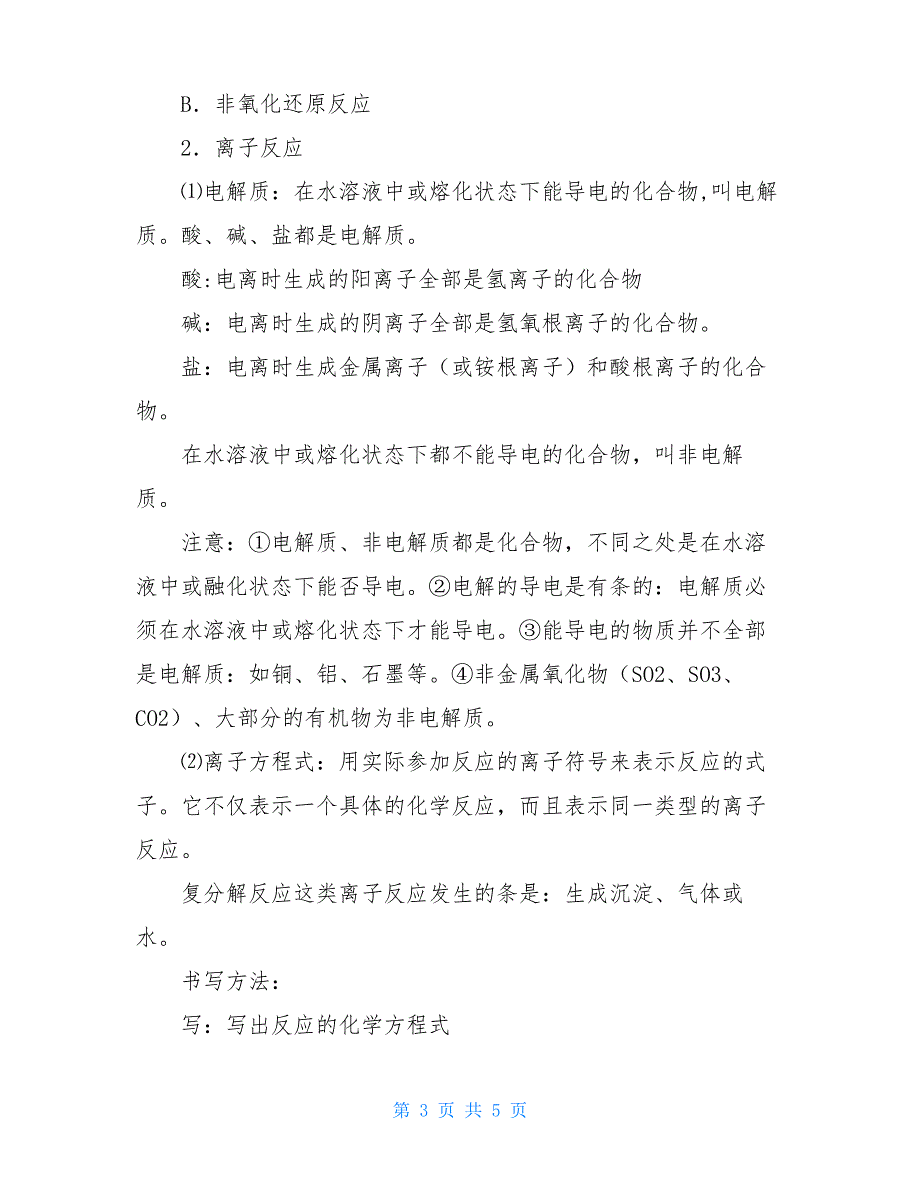 B．非氧化还原反应
2．离子反应
⑴电解质：在水溶液中或熔化状态下能导电的化合物,叫电解
质。酸、碱、盐都是电解质。
酸:电离时生成的阳离子全部是氢离子的化合物
碱：电离时生成的阴离子全部是氢氧根离子的化合物。
盐：电离时生成金属离子（或铵根离子）和酸根离子的化合
物。
在水溶液中或熔化状态下都不能导电的化合物，叫非电解
质。
注意：①电解质、非电解质都是化合物，不同之处是在水溶
液中或融化状态下能否导电。②电解的导电是有条的：电解质必
须在水溶液中或熔化状态下才能导电。③能导电的物质并不全部
是电解质：如铜、铝、石墨等。④非金属氧化物（SO2、SO3、
CO2）、大部分的有机物为非电解质。
⑵离子方程式：用实际参加反应的离子符号来表示反应的式
子。它不仅表示一个具体的化学反应，而且表示同一类型的离子
反应。
复分解反应这类离子反应发生的条是：生成沉淀、气体或
水。
书写方法：
写：写出反应的化学方程式
第 3 页 共 5 页